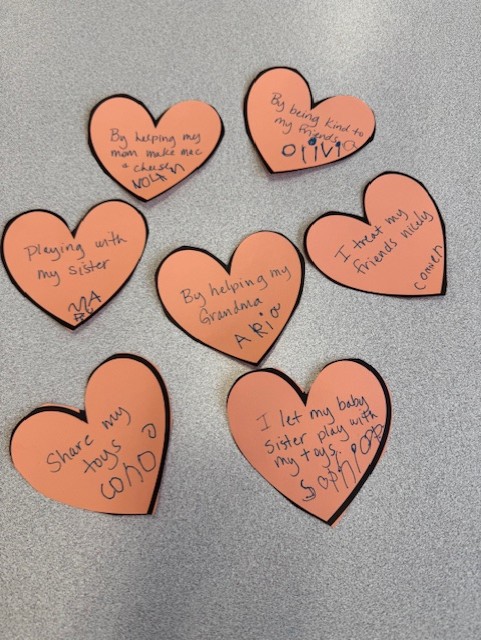 By helping my
mom make mac
a cheese
NOLAN
By being kind to
my friends
Olivia
Playing with
my sister
I treat my
friends nicely
By helping my
Grandma
ARia
Share my
toys
I let my baby
sister play with
my toys.